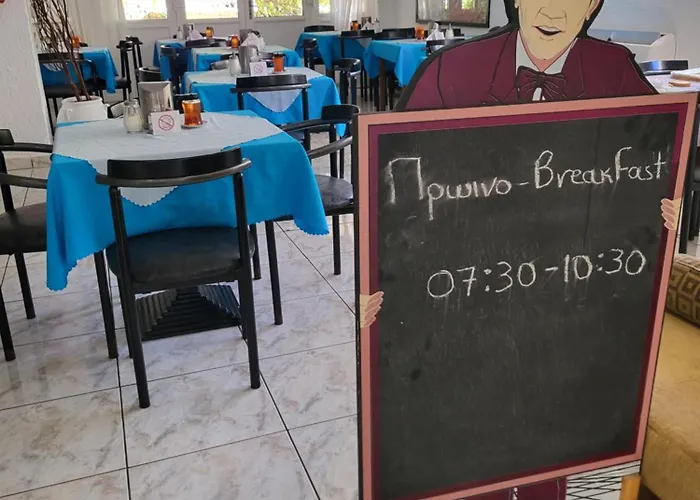 Πρωινο-Breakfast
07:30-10:30